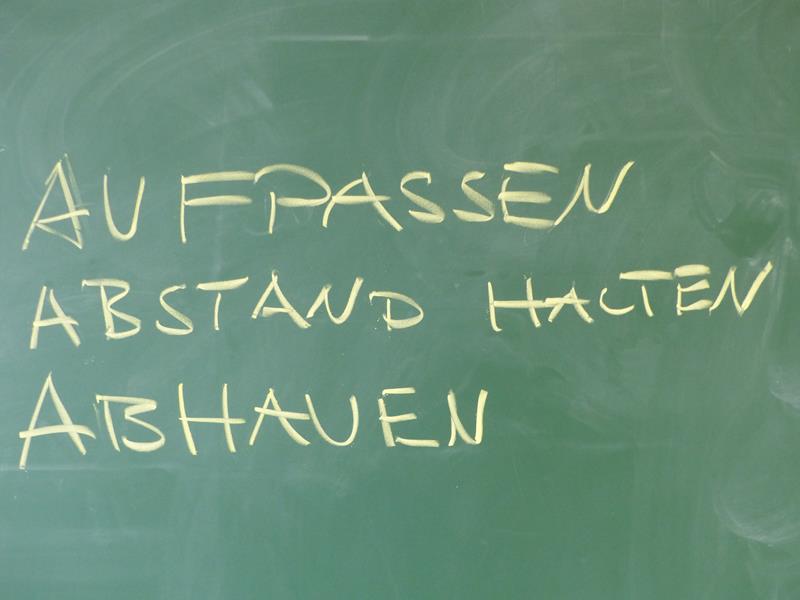 AUFPASSEN
ABSTAND HALTEN
ABHAUEN